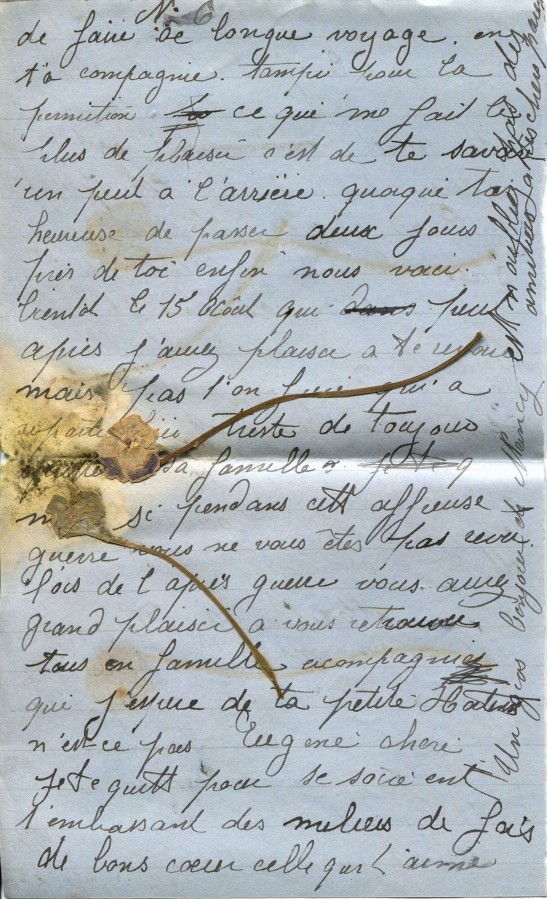 de faire de longue voyage. en
t'a compagnie. tampi pour la
permition ce que me fait le
plus de plaisir c'est de te savoir
un peut a l'arrière. quoique
heureuse de passer deux jours
près de toi enfin nous voici
bientot le 15 Août qui dans peut
après j'aurez plaisir a te
mais pas l'on qu'a
triste de toujour
sa famille
si pendans cett affreuse
guerre vous ne vous êtes pas revu
lois de l'après guerre vous aurez
grand plaisir a vous retrouver
tous en famille acompagnier
qui j'espere de ta petite
n'est-ce pas Eugene cherie
je te quitt pour se soire ent
t'embassant des miliers de fois
de bons coeur celle qui t'aime
Un gros bonjour de Nancy et n'oublier pas des
amitiés a tes chers